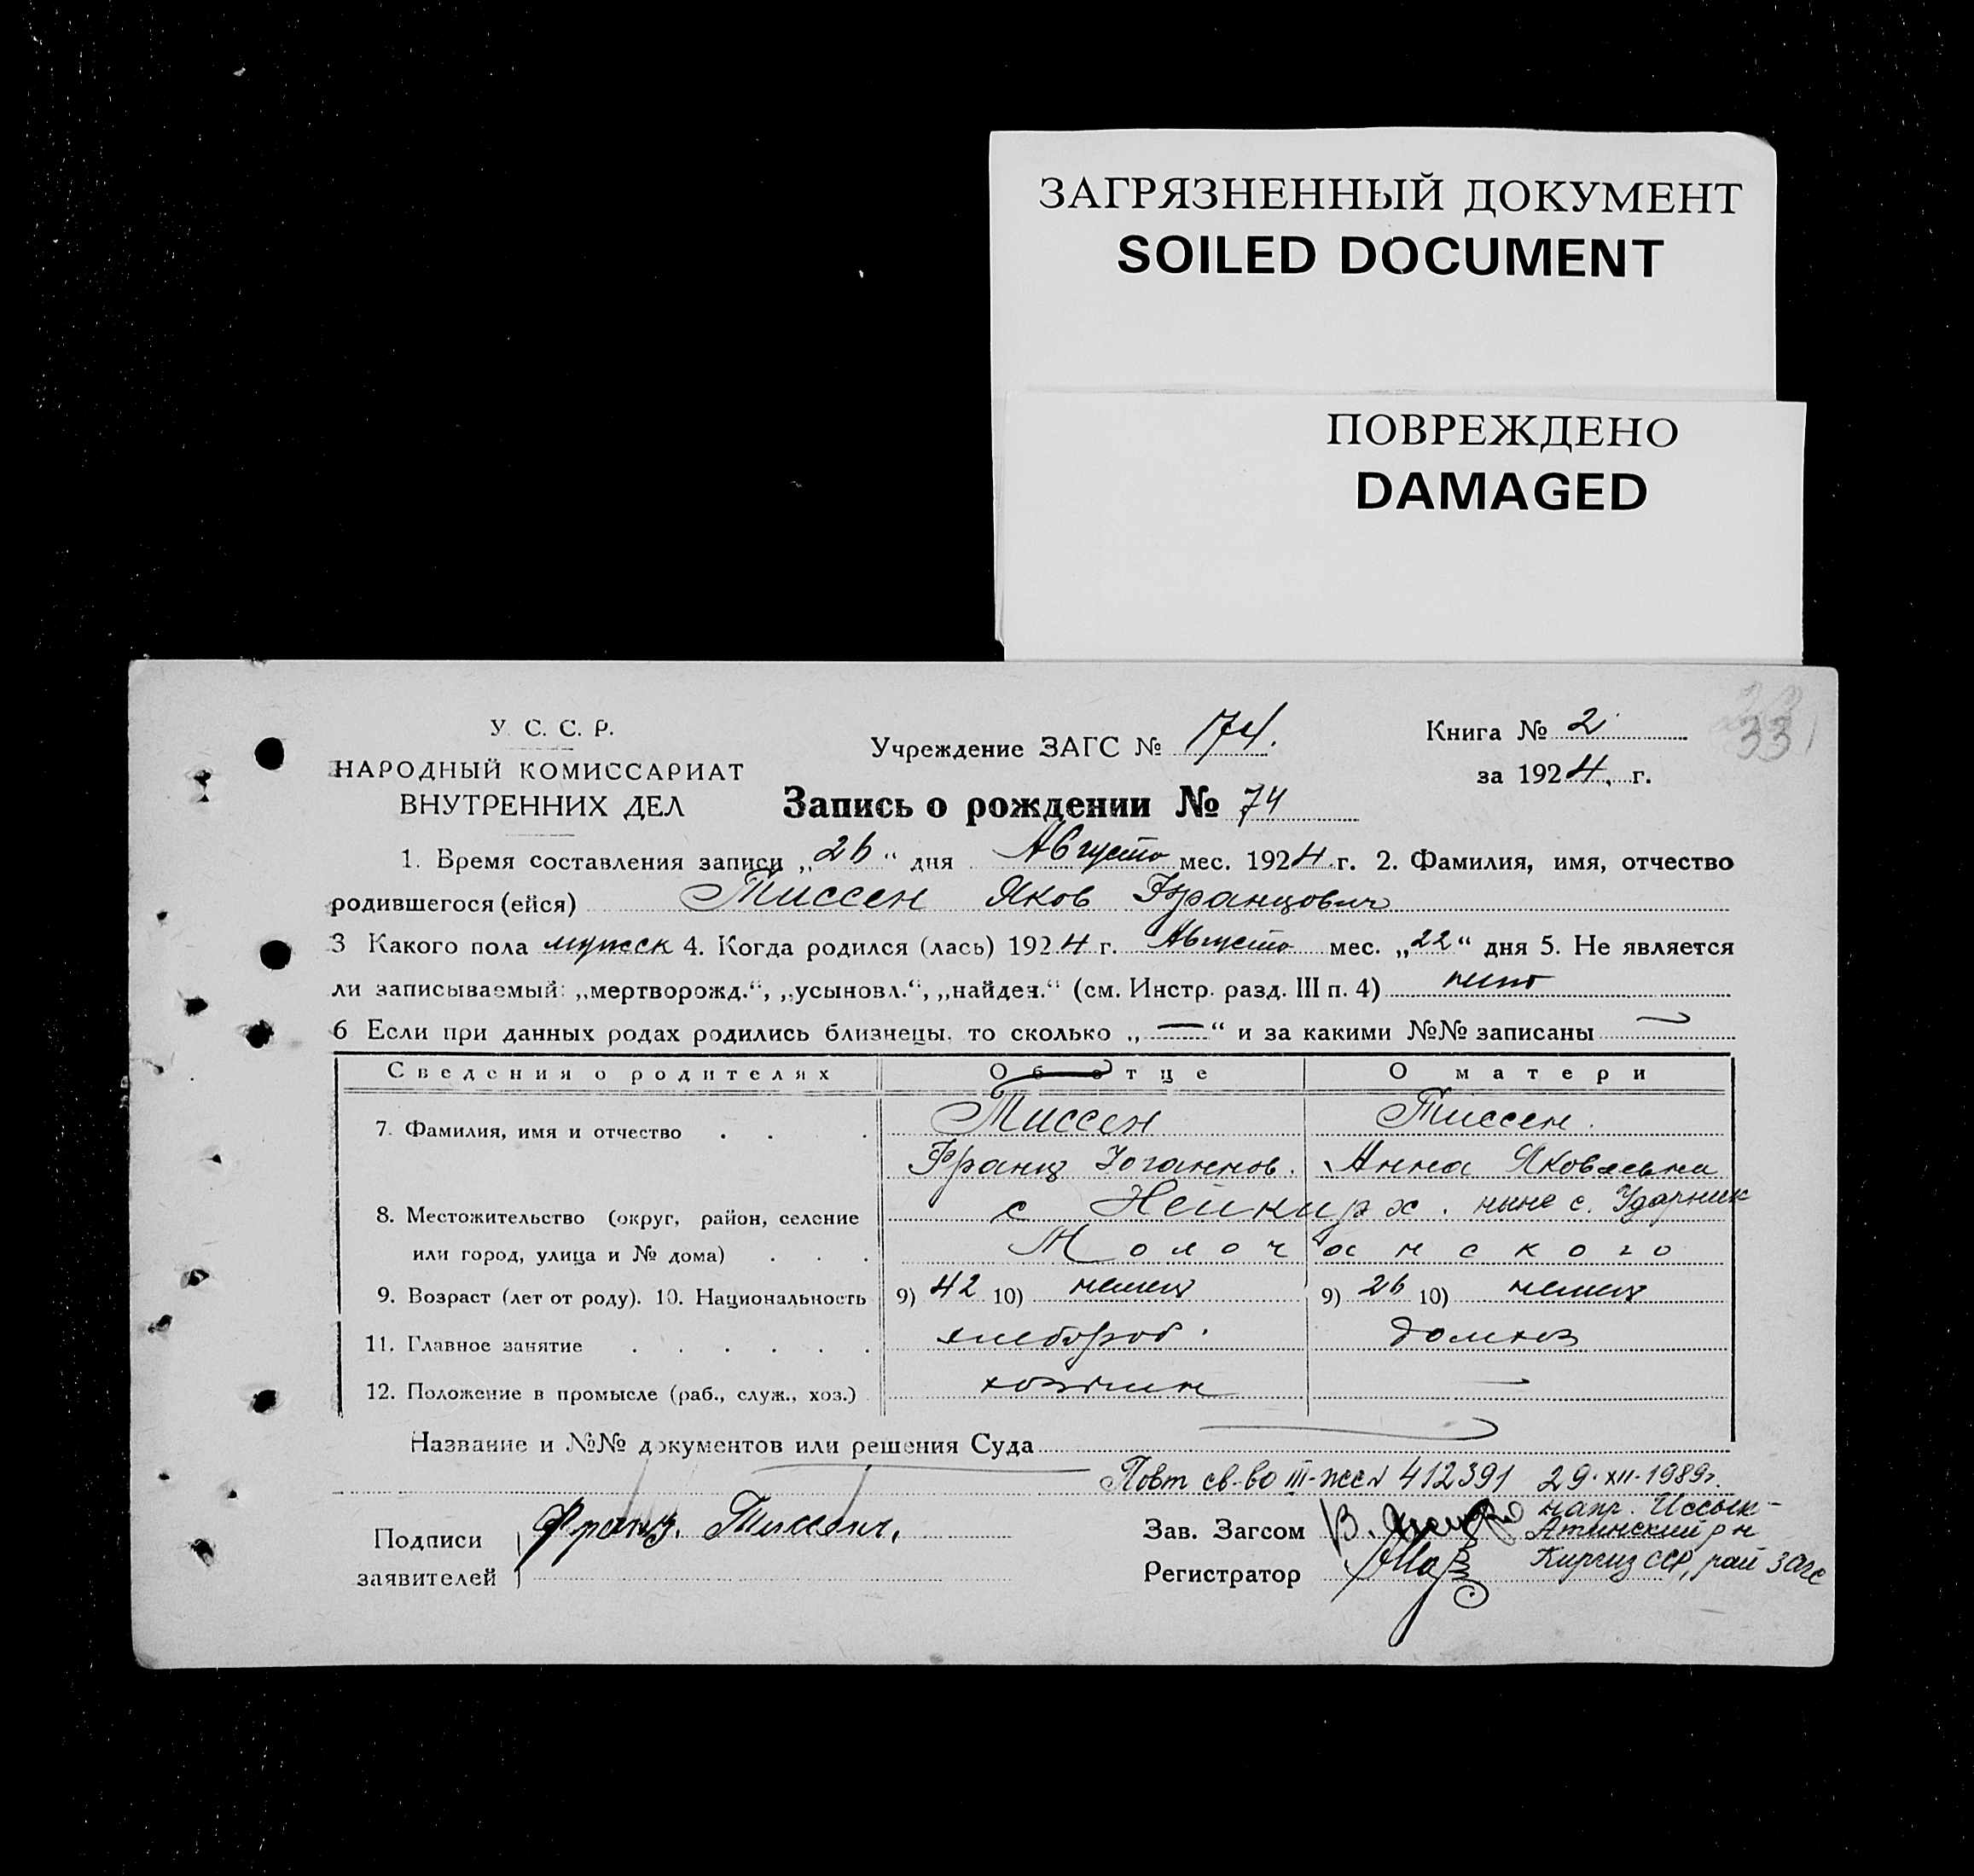 ЗАГРЯЗНЕННЫЙ ДОКУМЕНТ
SOILED DOCUMENT
ПОВРЕЖДЕНО
DAMAGED
33
У. С. С. Р.
НАРОДНЫЙ КОМИССАРИАТ
ВНУТРЕННИХ ДЕЛ
Учреждение ЗАГС № 174.
Книга № 2
за 1924 г.
Запись о рождении № 74
1. Время составления записи „26“ дня Августа мес. 1924 г. 2. Фамилия, имя, отчество
родившегося (ейся) Тиссен Яков Францович
3 Какого пола мужск 4. Когда родился (лась) 1924 г. Августа мес. „22“ дня 5. Не является
ли записываемый: „мертворожд.“, „усыновл.“, „найден.“ (см. Инстр. разд. III п. 4)
6 Если при данных родах родились близнецы, то сколько „—“ и за какими №№ записаны —
Сведения о родителях Об отце О матери
7. Фамилия, имя и отчество Тиссен Тиссен.
Франц Иоганнов. Анна Яковлевна
8. Местожительство (округ, район, селение с Нейкирх. ныне с. Ударник
или город, улица и № дома) Молочанского
9. Возраст (лет от роду). 10. Национальность 9) 42 10) немец 9) 26 10) немец
11. Главное занятие хлебороб. домхоз
12. Положение в промысле (раб., служ., хоз.) хозяин —
Название и №№ документов или решения Суда
Повт св-во III-жс № 412391 29.XII.1989г.
напр. Иссык-
Атинский р н
Киргиз ССР, рай загс
Подписи
заявителей
Франц. Тиссен.
Зав. Загсом В.
Регистратор